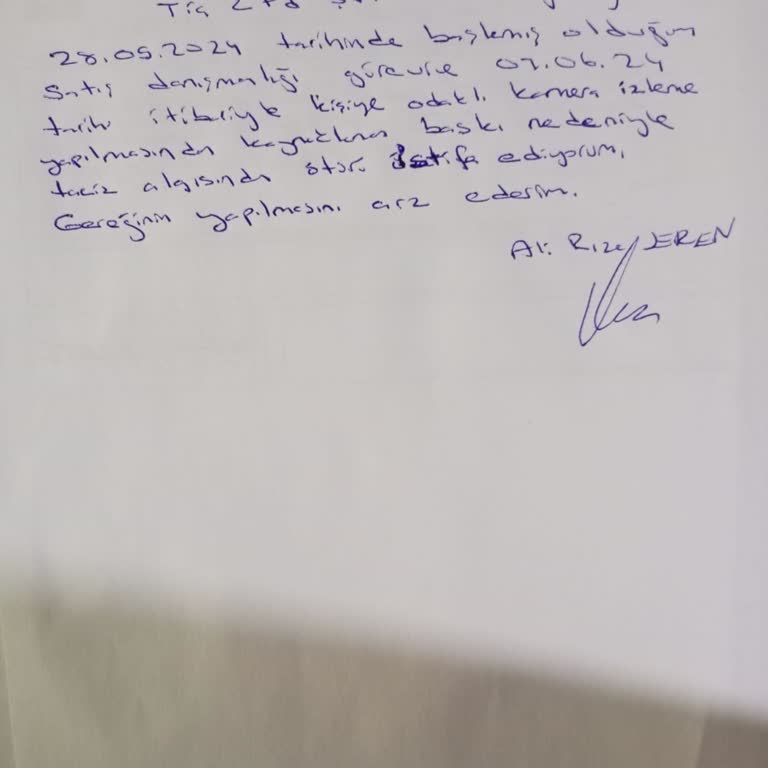 Tic Ltd
28.05.2024 tarihinde başlamış olduğum
Satış danışmanlığı görevime 07.06.24
tarihi itibariyle kişiye odaklı kamera izleme
yapılmasından kaynaklanan baskı nedeniyle
taciz algısından ötürü istifa ediyorum,
Gereğinin yapılmasını arz ederim.
Ali Rıza EREN